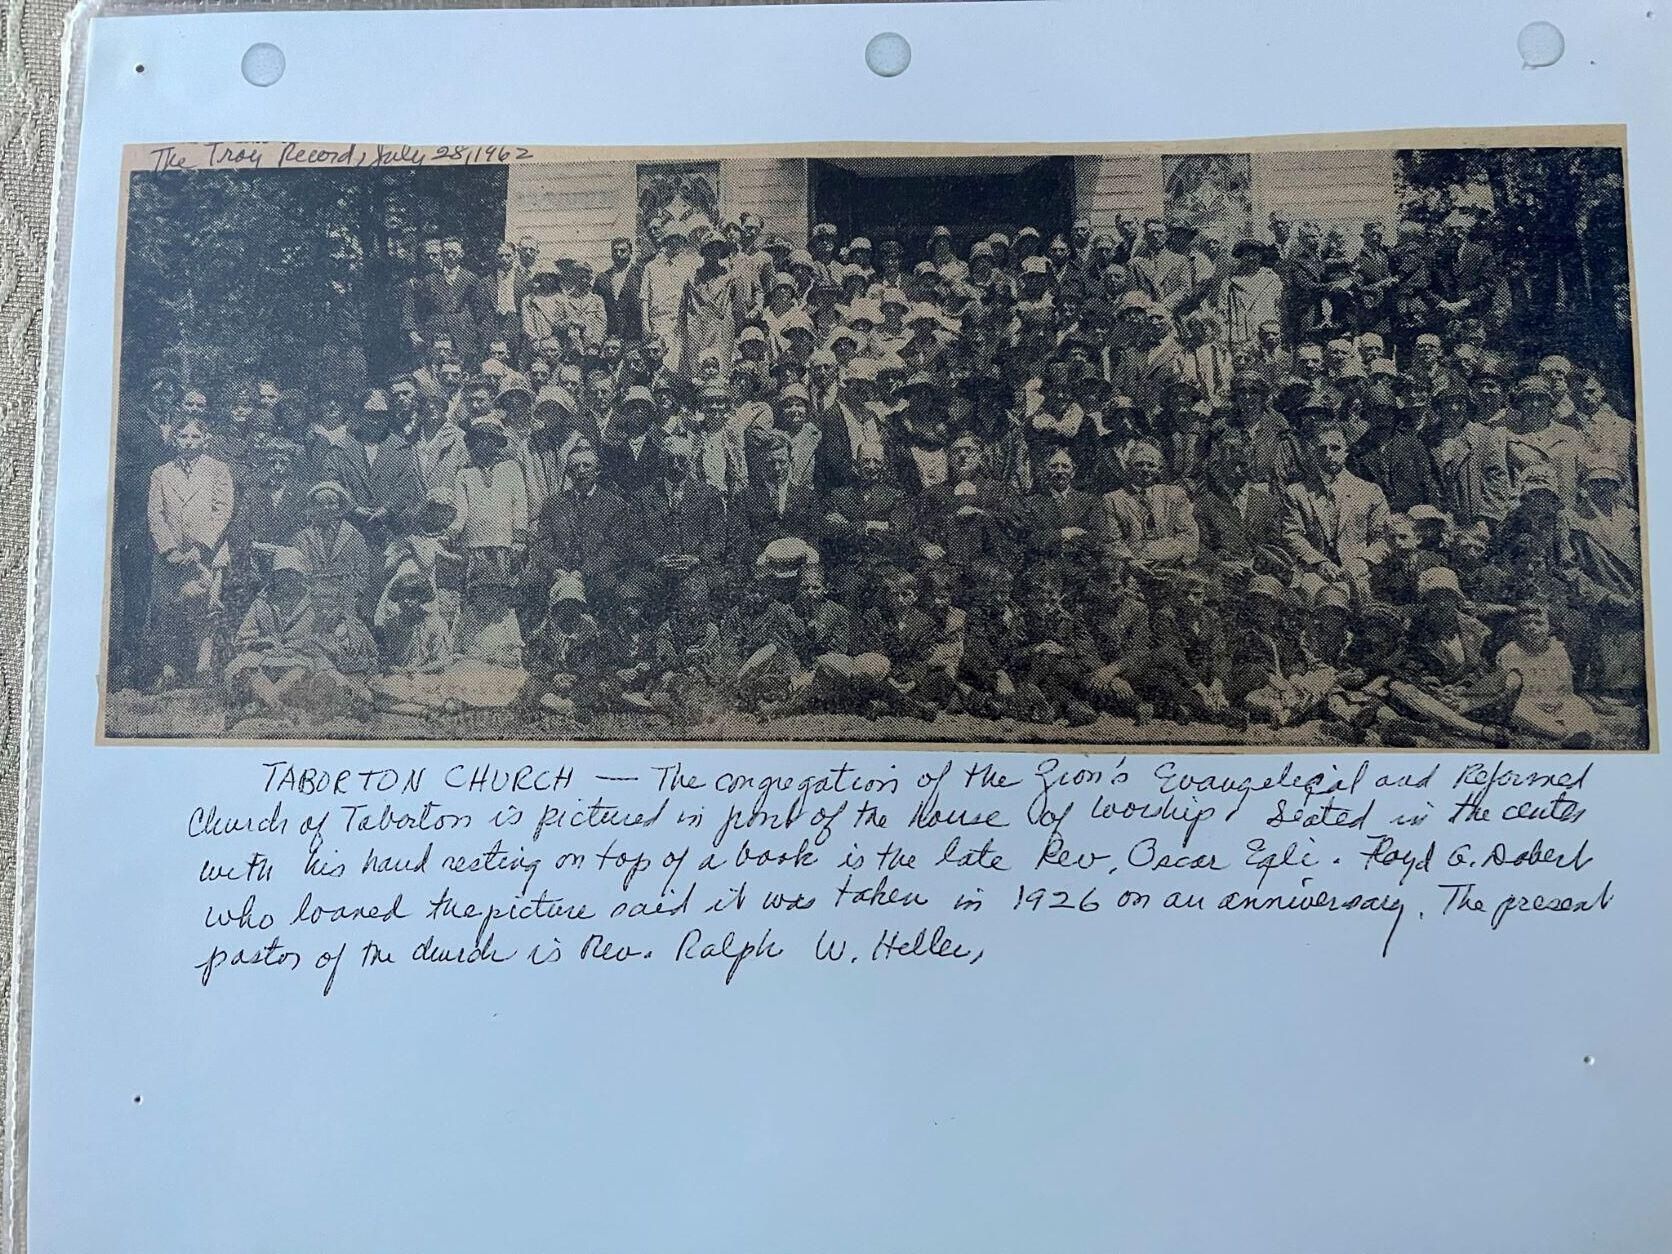 The Troy Record, July 28, 1962
TABORTON CHURCH — The congregation of the Zion's Evangelical and Reformed
Church of Taborton is pictured in front of the house of worship. Seated in the center
with his hand resting on top of a book is the late Rev. Oscar Egli. Floyd G. Dobert
who loaned the picture said it was taken in 1926 on an anniversary. The present
pastor of the church is Rev. Ralph W. Heller,